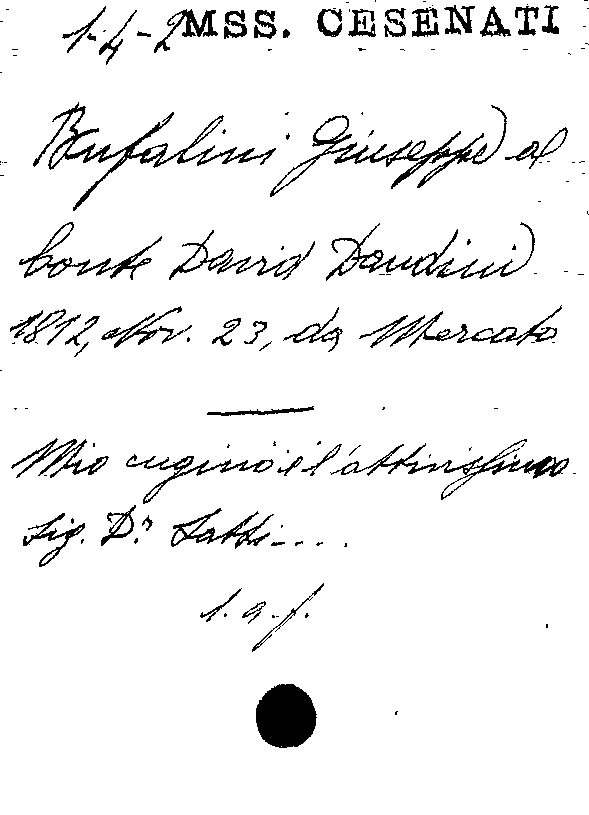 1-4-2 MSS. CESENATI
Bufalini Giuseppe al
Conte David Dandini
1812, Nov. 23, da Mercato
Mio cugino è l'attivissimo
Sig. Dr. Satti....
l. a. f.